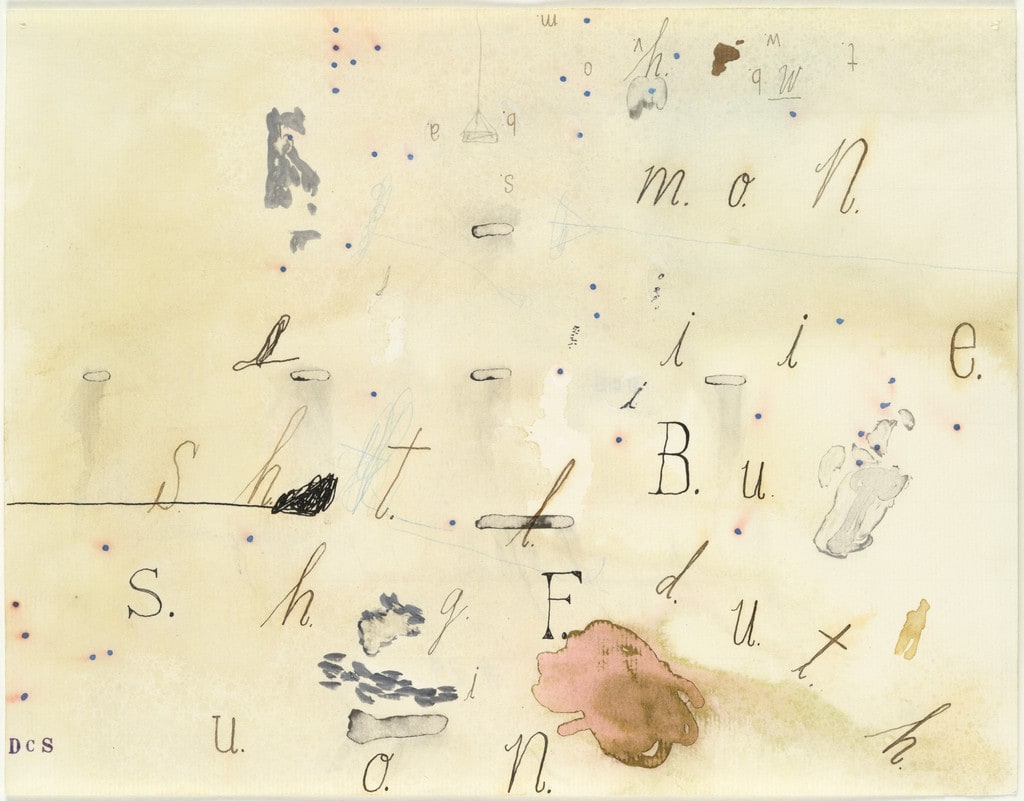 m.
o v h. w t.
b. w
a b.
s.
m. o. N.
l i i e.
i
s h. t. B. u.
l.
S. h. g. F. d. u. t.
i
DCS u. h.
o. N.